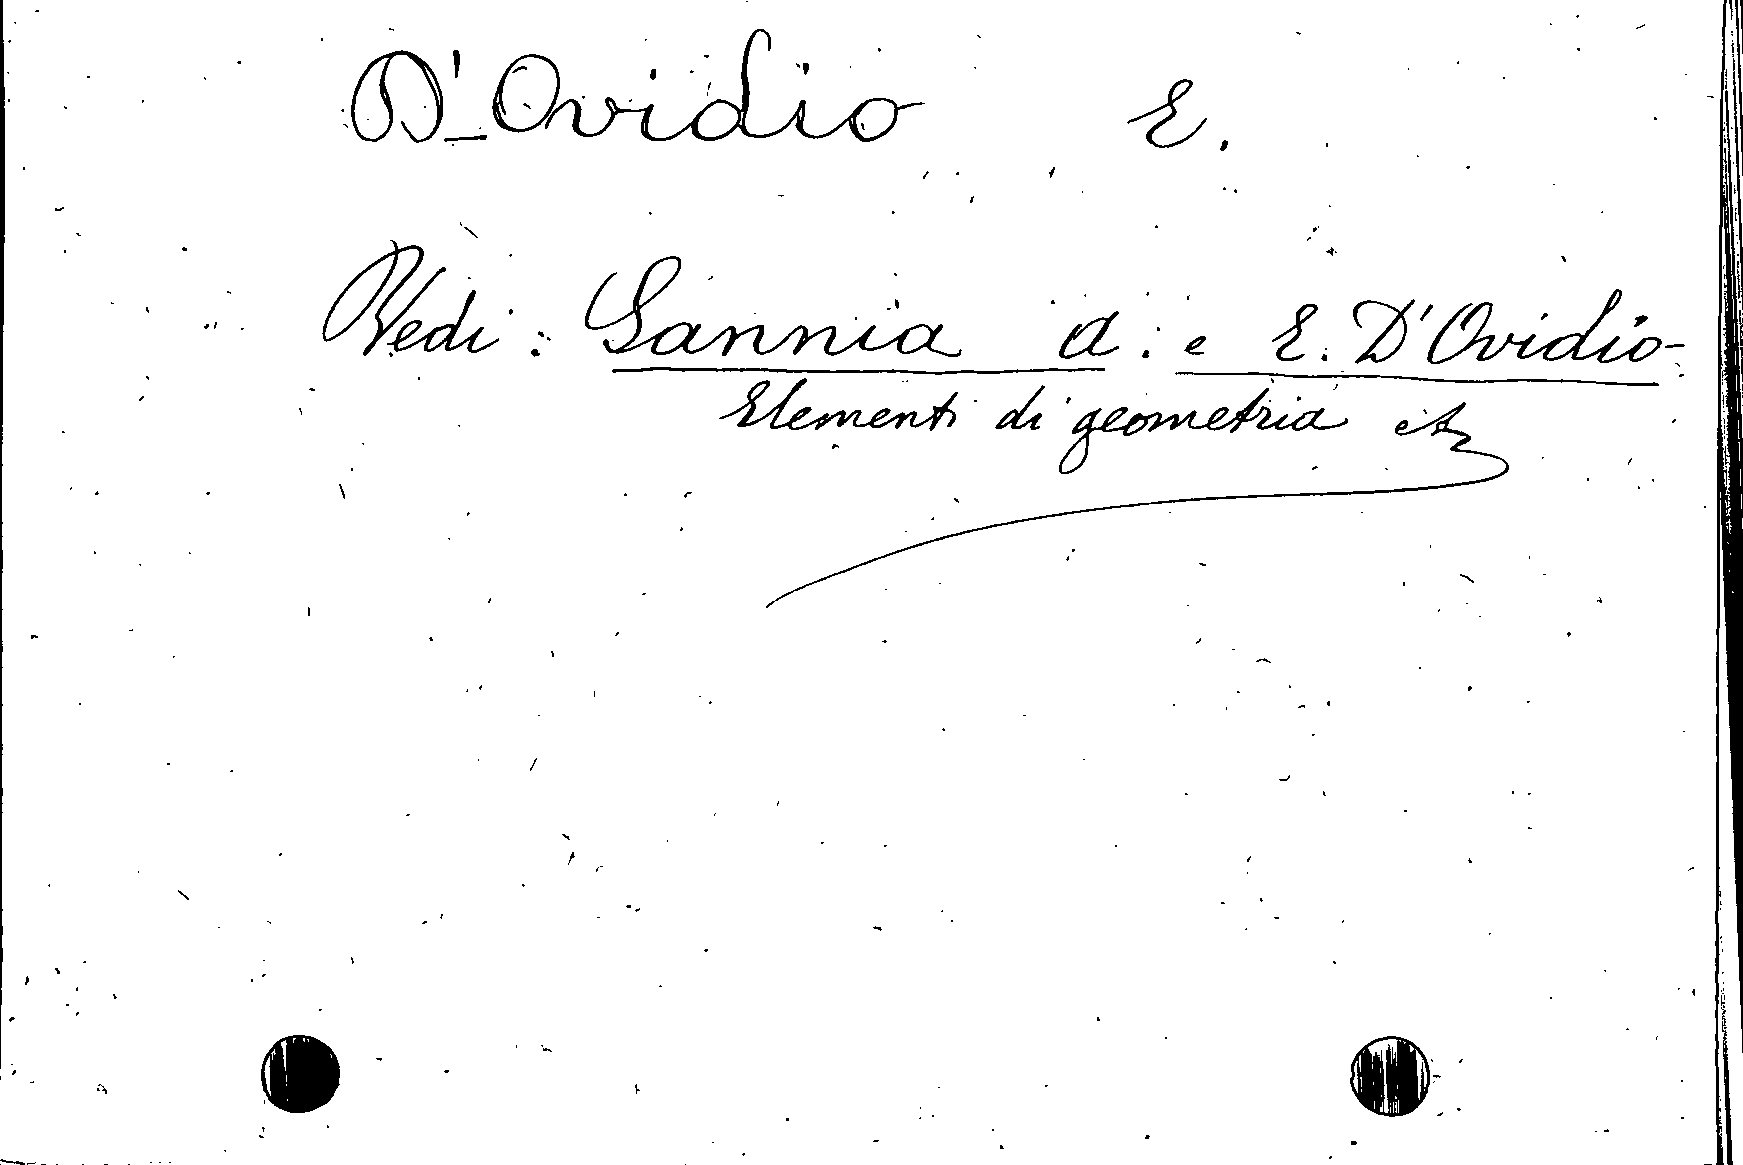 D'Ovidio E.
Vedi: Sannia A. e E. D'Ovidio-
Elementi di geometria etc